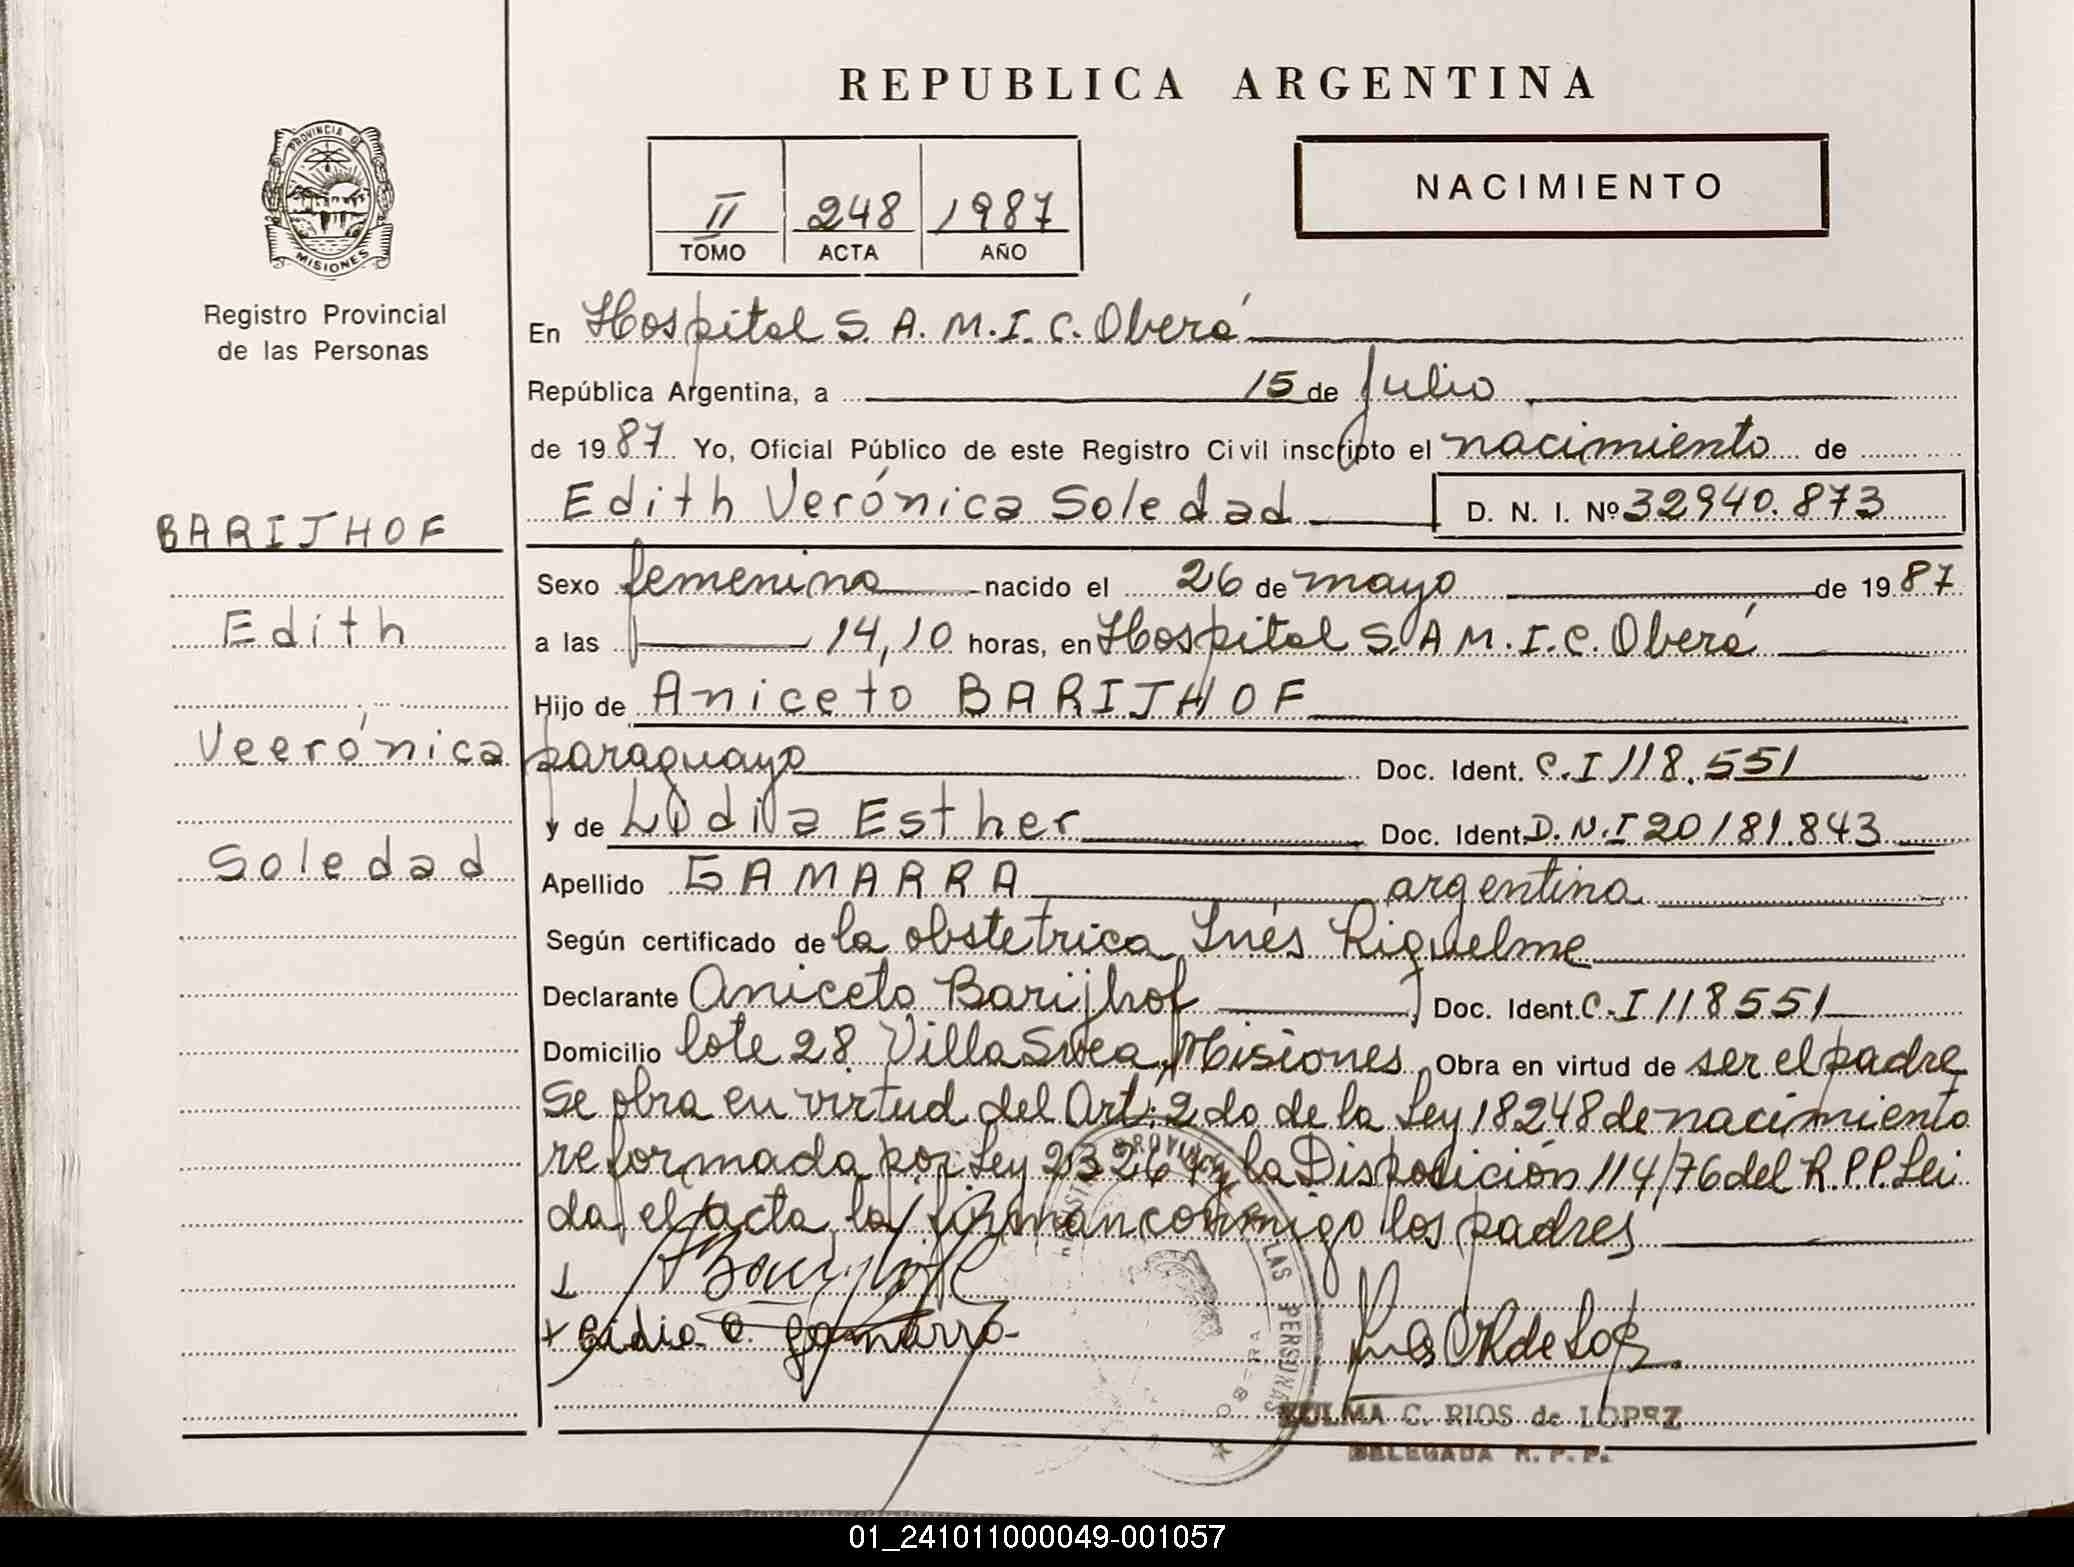 REPUBLICA ARGENTINA
PROVINCIA DE
MISIONES
Registro Provincial
de las Personas
II 248 1987
TOMO ACTA AÑO
NACIMIENTO
En Hospital S. A. M. I. C. Oberá
República Argentina, a 15 de julio
de 1987. Yo, Oficial Público de este Registro Civil inscripto el nacimiento de
Edith Verónica Soledad D. N. I. Nº 32940.873
BARIJHOF
Edith
Veerónica
Soledad
Sexo femenino nacido el 26 de mayo de 1987
a las 14,10 horas, en Hospital S. A M. I. C. Oberá
Hijo de Aniceto BARIJHOF
paraguayo Doc. Ident. C. I 118.551
y de Lidia Esther Doc. Ident. D. N. I 20181.843
Apellido GAMARRA argentina
Según certificado de la obstetrica Inés Riquelme
Declarante Aniceto Barijhof Doc. Ident. C. I 118551
Domicilio lote 28 Villa Svea, Misiones Obra en virtud de ser el padre
Se obra en virtud del Art. 2 do de la Ley 18248 de nacimiento
reformada por Ley 23264 y la Disposición 114/76 del R. P. P. Lei
da el acta la firman conmigo los padres
Lidia E. Gamarra
REGISTRO PROVINCIAL DE LAS PERSONAS
ZULMA C. RIOS de LOPEZ
DELEGADA R. P. P.
01_241011000049-001057